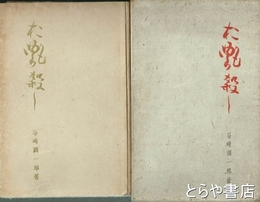 お艶殺し
谷崎潤一郎著
お艶殺し
谷崎潤一郎著
とらや書店